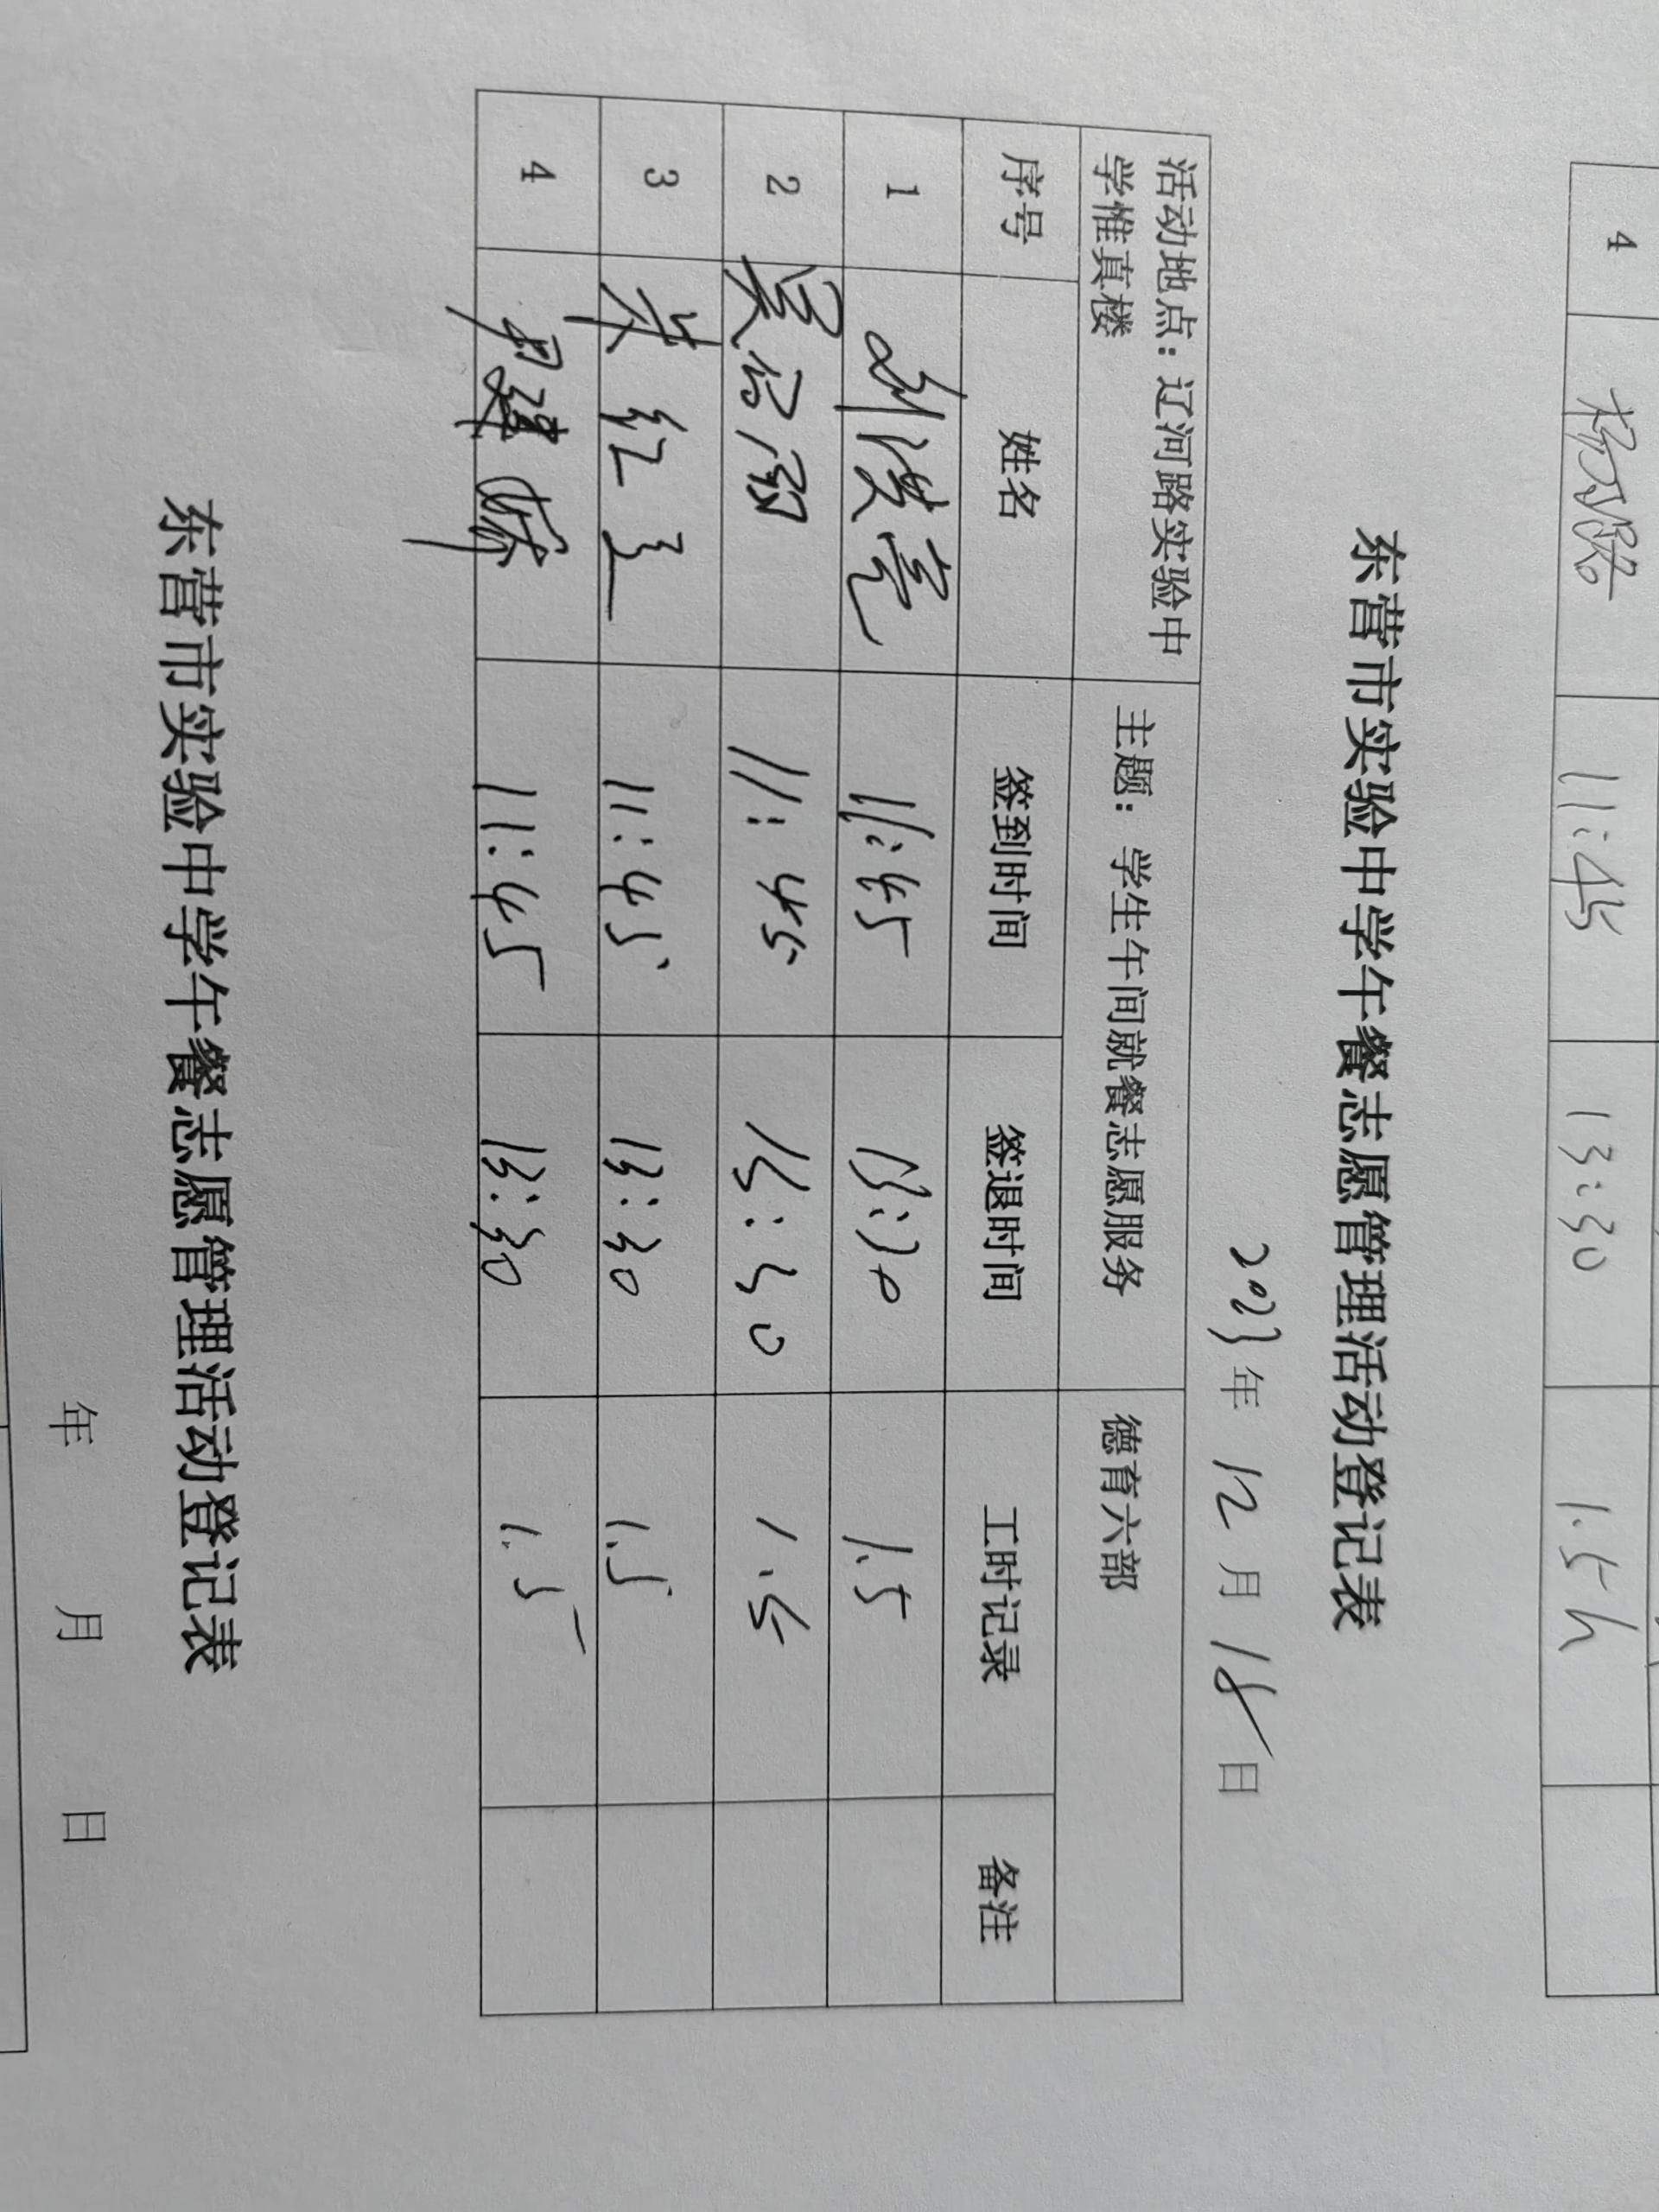 4 11:45 13:30 1.5h
东营市实验中学午餐志愿管理活动登记表
2023年12月18日
活动地点：辽河路实验中
学惟真楼
主题：学生午间就餐志愿服务
德育六部
序号 姓名 签到时间 签退时间 工时记录 备注
1 11:45 13:30 1.5
2 11:45 13:30 1.5
3 11:45 13:30 1.5
4 11:45 13:30 1.5
东营市实验中学午餐志愿管理活动登记表
年 月 日